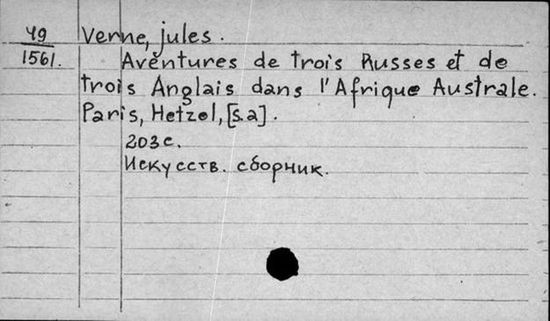 49
1561.
Verne, jules.
Aventures de trois Russes et de
trois Anglais dans l'Afrique Australe.
Paris, Hetzel, [s.a].
203 с.
Искусств. сборник.